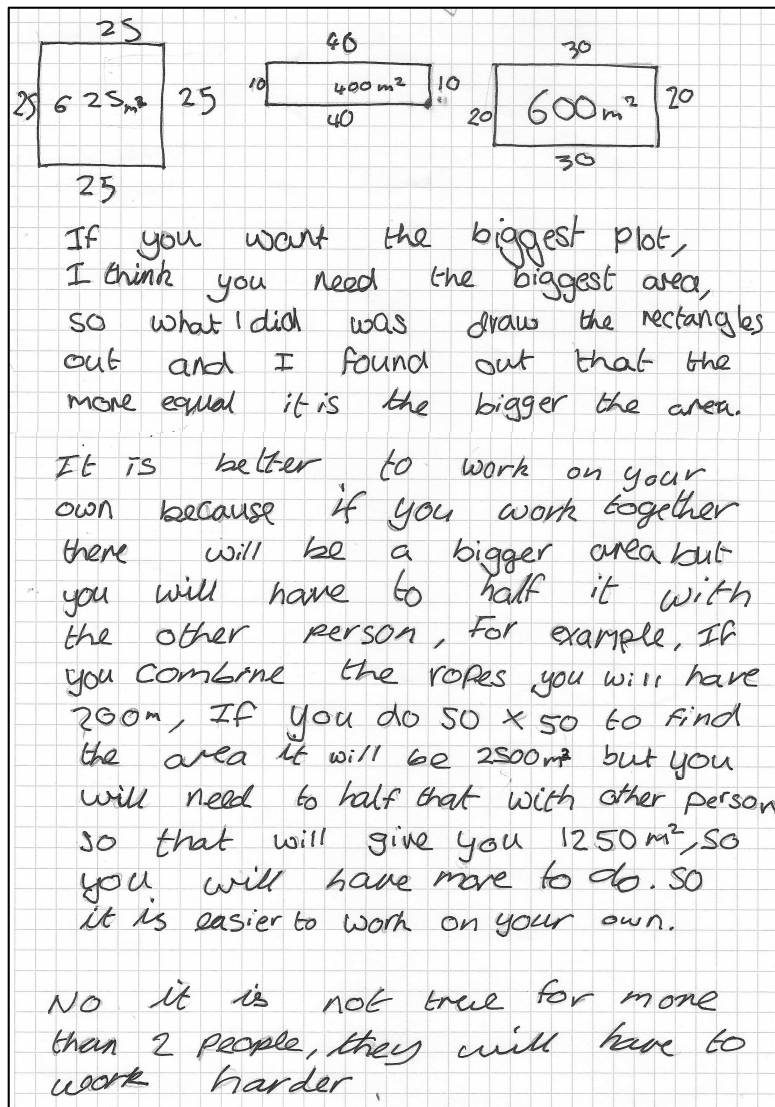 25
25
625m²
25
25
40
10
400m²
10
40
30
20
600m²
20
30
If you want the biggest plot,
I think you need the biggest area,
so what I did was draw the rectangles
out and I found out that the
more equal it is the bigger the area.
It is better to work on your
own because if you work together
there will be a bigger area but
you will have to half it with
the other person, For example, If
you combine the ropes you will have
200m, If you do 50 x 50 to find
the area it will be 2500m² but you
will need to half that with other person
so that will give you 1250m², so
you will have more to do. so
it is easier to work on your own.
No it is not true for more
than 2 people, they will have to
work harder.